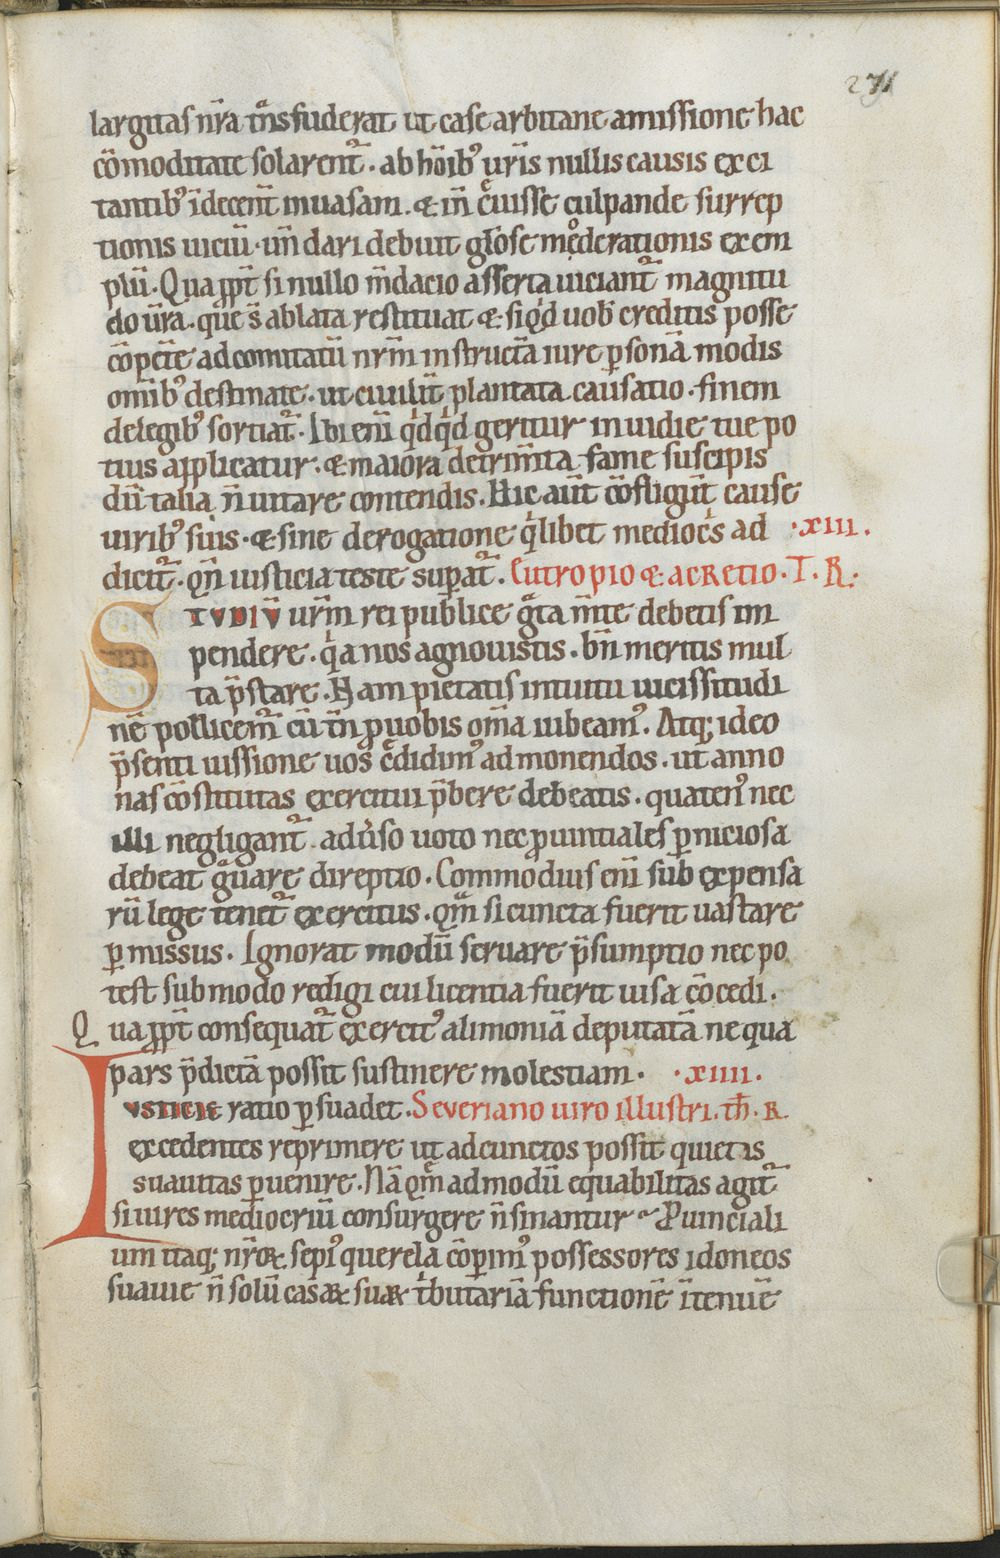 271
largitas nr̄a tͣnsfuderat ut case arbitane amissione hac
cōmoditate solarent᷑. ab hōib᷒ ur̄is nullis causis exci
tantib᷒ īdecent̄ inuasam. & in̄ cͤuisse culpande surrep
tionis uiciū. un̄ dari debuit glōse moderationis exem
plū. Quapropt̄ si nullo m̄dacio asserta uiciant᷑ magnitu
do ur̄a. que s̄ ablata restituat & siqͥd uob̄ creditis posse
cōpct̄e ad comitatū nrm̄ instructā iure psonā modis
omīb᷒ destinate. ut ciuilit̄ plantata causatio. finem
delegib᷒ sortiat᷑. Ibi eni̅ qͥdqͥd geritur inuidie tue po
tius applicatur. & maiora detrim̄ta fame suscipis
dū talia n̄ uitare contendis. Hic aūt cōfligūt cause
uirib᷒ suis. & sine derogatione qͥlibet mediocs̄ ad .xiii.
dicit᷑. qn̄ iusticia teste supat᷑. Eutropio & acretio. T. R:
STVDIV̄ urm̄ rei publice gͣta m̄te debetis im
pendere. qͥa nos agnouistis. bn̄ meritis mul
ta p̄stare. Nam pietatis intuitu uicissitudi
nē pollicem᷑ cū tn̄ pro uobis om̄a iubeam᷒. Atq; ideo
p̄senti iussione uos cͤdidim᷒ admonendos. ut anno
nas cōstitutas exercitui p̄bere debeatis. quaten᷒ nec
illi negligant᷑ adu̓so uoto nec prouintiales pniciosa
debeat gͣuare direptio. Commodius eni̅ sub expensa
rū lege tenet᷑ exercitus. qͣm si cuncta fuerit uastare
pmissus. Ignorat modū seruare p̄sumptio nec po
test submodo redigi cui licentia fuerit uisa cōcedi.
Quapropt̄ consequat᷑ exercit᷒ alimoniā deputatā ne qua
pars p̄dictā possit sustinere molestiam. .xiiii.
IVSTICIE ratio psuadet. Seueriano uiro illustri. th̄. R.
excedentes reprimere ut ad cunctos possit quietis
suauitas puenire. Nā qͤm admodū equabilitas agit᷑
si uires mediocriū consurgere n̄ sinantur Prouinciali
um itaq; nr̄oꝝ. sepi᷒ querela cōpim᷒ possessores idoneos
suaue n̄ solū casaꝝ suaꝝ tͥbutariā functionē ītenuē